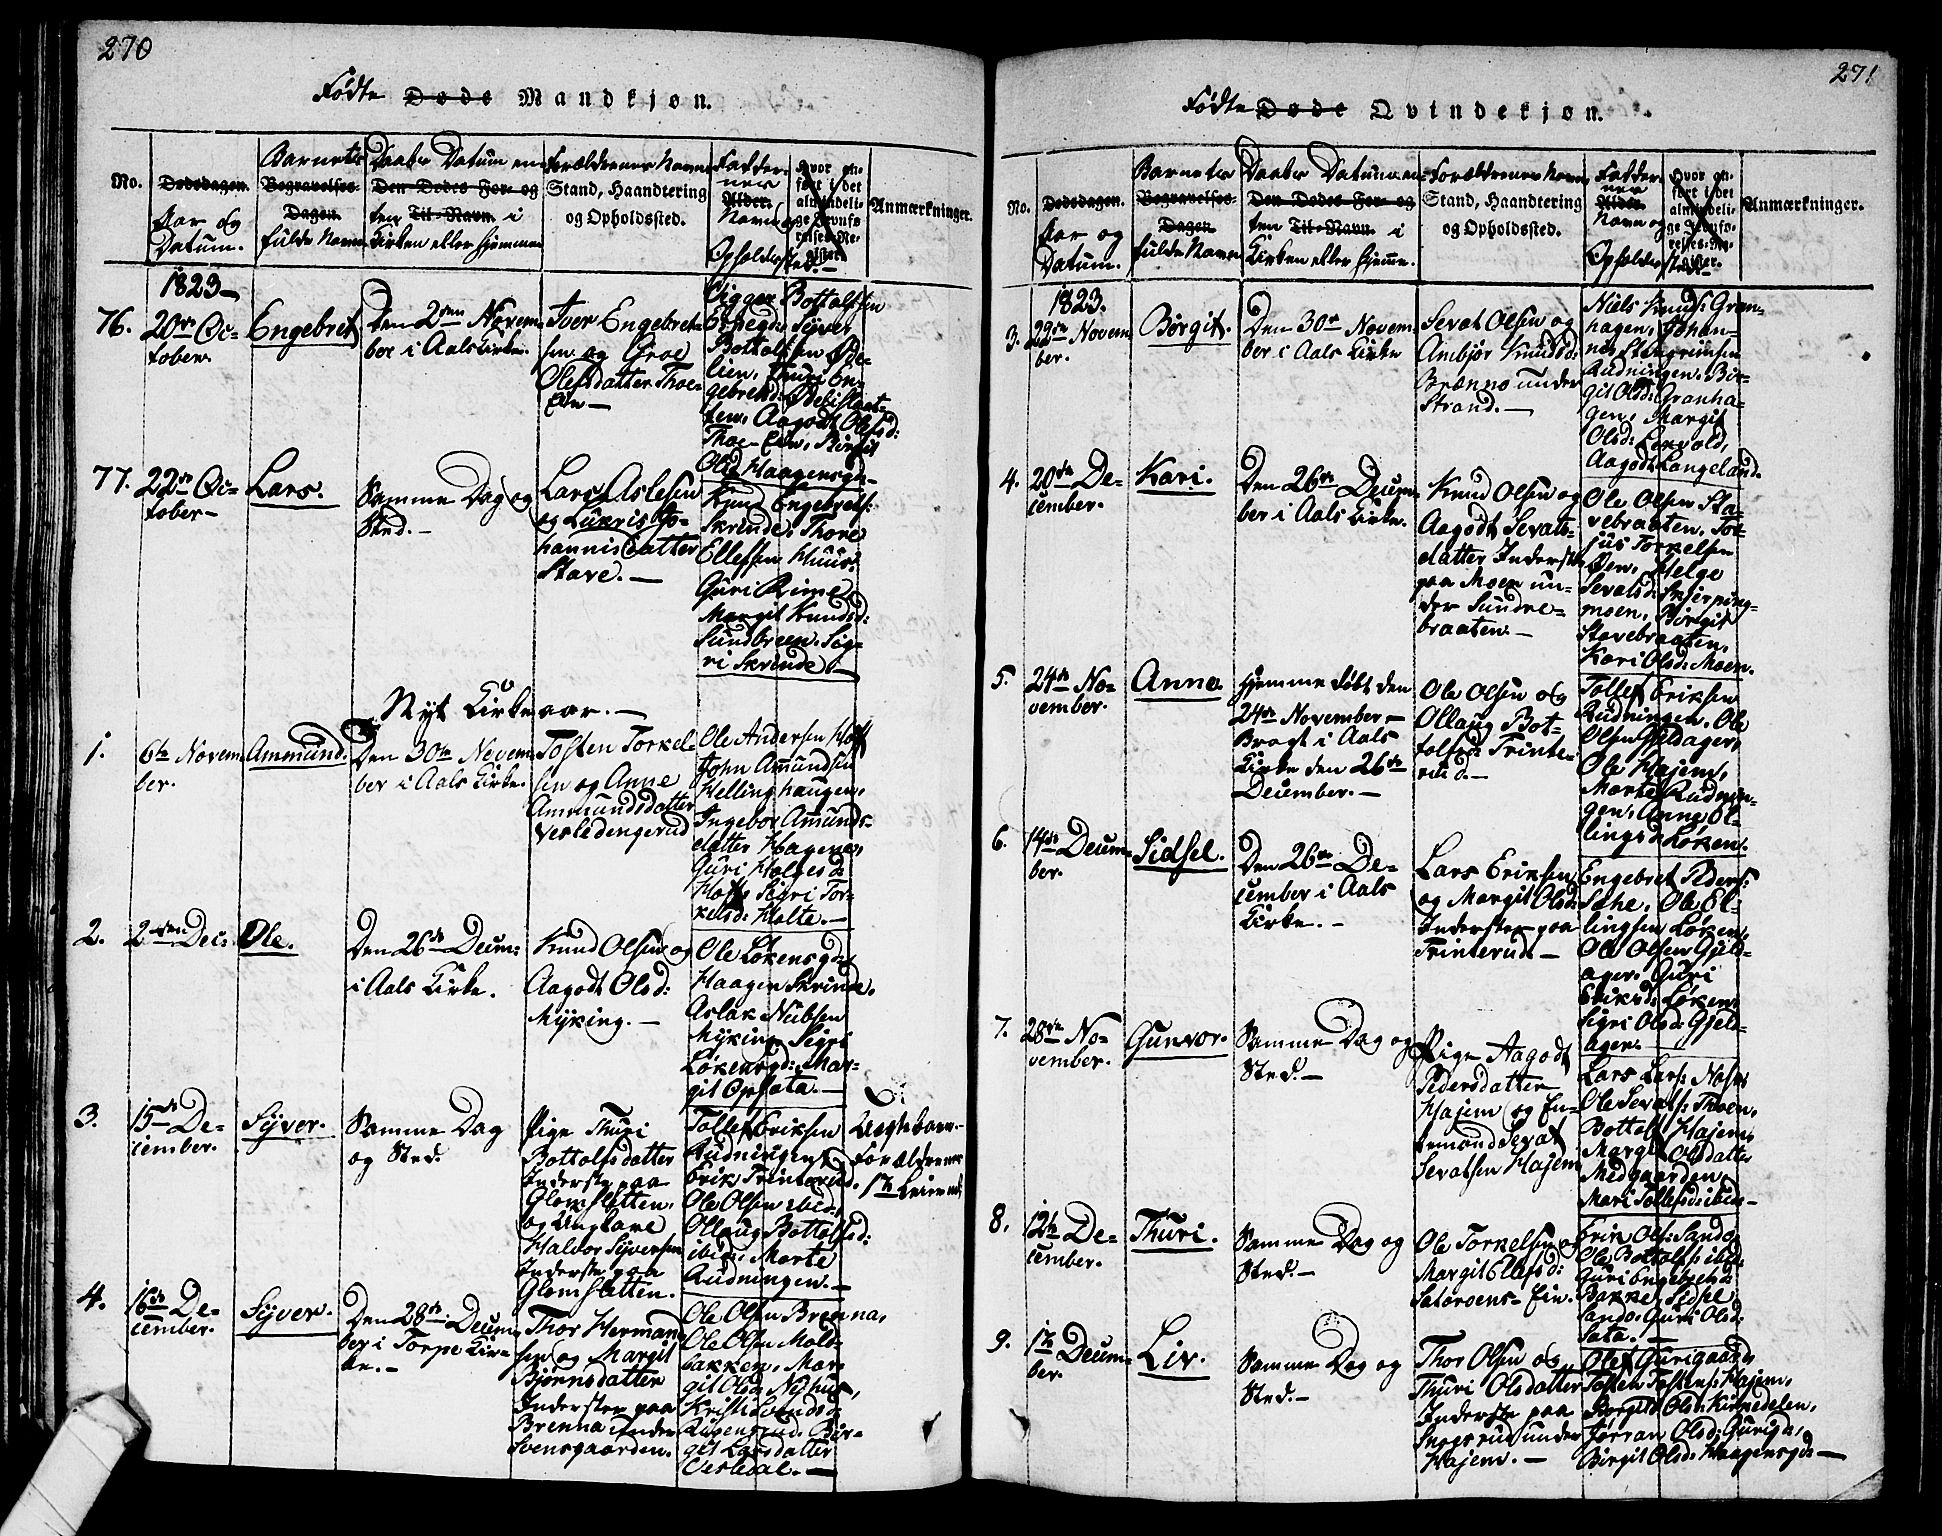 270
Fødte Døde Mandkjøn.
No.
Dødsdagen.
Aar og
Datum.
Barnets
Begravelses-
Dagen.
fulde Navn
Daabs Datum en-
Den Dødes For- og
ten Til-Navn i
Kirken eller hjemme
Forældrenes Navne
Stand, Haandtering
og Opholdssted.
Fadder-
nes
Alder.
Navn og
Opholdssted.-
Hvor an-
ført i det
almindeli-
ge Jevnfø-
relses-Re-
gister.
Anmærkninger.
1823-
76.
20de Oc-
tober.
Engebret
Den 2den Novem-
ber i Aals Kirke.
Iver Engebret-
sen og Groe
Olefsdatter Thoe-
Eie-
Sigger Bottolfsen
Sÿver
Bottolfsen
Thuri En-
gebretsd:
ten, Aagodt Olefsd:
Thoe-Eie, Birgit
Olsd. Haagensgd-
77.
22de Oc-
tober-
Lars.
Samme Dag og
Sted.-
Lars Aslesen
og Lükris Jo-
hannisdatter
Stave.-
Knud Engebrets:
Skrinde, Thore
Ellefsen Huus,
Guri Rime,
Margit Knudsd:
Sundbreen, Sig-
ri Skrinde.-
Nyt Kirkeaar.-
1.
6te Novem-
ber.
Ammund.
Den 30te Novem-
ber i Aals Kirke.
Tosten Torkel-
sen og Anne
Ammundsdatter
Vesledengerud
Ole Andersen Hoff
John Amundsen
Hellinghaugen,
Ingebor Amunds-
datter Hagene,
Guri Holgesd:
Hoff, Sigri Tor-
kelsd: Holte.-
2.
2den Dec:
Ole.
Den 26de Decem:
i Aals Kirke.
Knud Olsen og
Aagodt Olsd:
Myking.-
Ole Løkensgd,
Haagen Skrinde,
Aslak Nübsen
Myking, Sigri
Løkensgd: Mar-
git Opsata.-
3.
15de De-
cember.
Sÿver.
Samme Dag
og Sted.
Pige Thuri
Bottolfsdatter
Inderste paa
Glomsletten,
og Ungkare
Haldor Sÿversen
Inderste paa
Glomsletten.
Tollef Eriksen
Rudningen,
Erik Trinterud.
Ole Olsen ibid,
Ollaug Bottolfsd:
ibid: Marte
Rudningen.-
Uægte barn.-
Forældrenes
1ste Leierm:
4.
16de De-
cember.
Sÿver.
Den 28de Decem-
ber i Torpe Kir-
ke.-
Thor Herman-
sen og Margit
Bjørnsdatter
Inderster paa
Brenna under
Svensgaarden.
Ole Olsen Brenna,
Ole Olsen Mole-
bakken, Mar-
git Olsd: Nÿhus,
Kristi Svendsd:
Ruvengrud, Bir-
git Larsdatter
Vesledal.-
271
Fødte Døde Qvindekjøn.
No.
Dødsdagen.
Aar og
Datum.
Barnets
Begravelses-
Dagen.
fulde Navn
Daabs Datum en-
Den Dødes For- og
ten Til-Navn i
Kirken eller hjeme.
Forældrenes Navne
Stand, Haandtering
og Opholdssted.
Fadder-
nes
Alder.
Navn og
Opholdssted-
Hvor an-
ført i det
almindeli-
ge Jevnfø-
relses-Re-
gister.
Anmærkninger.
1823.
3.
22de Novem-
ber.
Børgit.
Den 30te Novem-
ber i Aals Kirke
Sevat Olsen og
Ambjør Knudsd:
Brænno under
Strand.-
Niels Knuds: Gran-
hagen, Johan-
nes Stengrimsen
Rudningen, Bir-
git Olsd: Granha-
gen, Margit
Olsd: Lervold,
Aagodt Langeland.
4.
20de De-
cember.
Kari.
Den 26de Decem-
ber i Aals Kirke.
Knud Olsen og
Aagodt Sevats-
datter Inderster
paa Moen un-
der Sundre-
braaten.-
Ole Olsen Sta-
vebraaten, Tor-
jus Torkelsen
Øen, Helge
Sevatsd: Skjerping-
moen, Birgit
Stavebraaten,
Kari Olsd: Moen.
5.
24de No-
vember.
Anne
Hjemme døbt den
24de November-
Bragt i Aals
Kirke den 26de
December.-
Ole Olsen og
Ollaug Bot-
tolfsd: Trinte-
rud.-
Tollef Eriksen
Rudningen, Ole
Olsen Gjeldager,
Ole Hajem,
Marte Rudnin-
gen, Anne Ol-
lingsd: Løken.
6.
14de Decem-
ber.
Sidsel.
Den 26de De-
cember i Aals
Kirke.-
Lars Eriksen
og Margit Olsd:
Inderster paa
Trinterud.-
Engebret Peders:
Sche, Ole El-
lingsen Løken,
Ole Olsen Gjeld-
ager, Guri
Eriksd: Løken,
Sigri Olsd: Gjeld-
ager.
7.
28de No-
vember.
Gunvor.
Samme Dag og
Sted.-
Pige Aagodt
Pedersdatter
Hajem og En-
kemand Sevat
Sevatsen Hajem
Lars Lars: Naess
Ole Sevats: Thoen,
Bottolf Hajem,
Margit Olsdatter
Medgaarden,
Mari Tollefsd: ibid.-
8.
12te De-
cember.
Thuri.
Samme Dag og
Sted.-
Ole Torkelsen og
Margit Olefsd:
Sataroens-Eie.
Erik Ols: Sando
Ole Bottolfs: ibid.
Guri Engebretsd:
Bakke, Sidsel
Sando, Guri Olsd:
Sata.-
9.
1te Decem-
ber.
Liv.
Samme Dag og
Sted.-
Thor Olsen og
Thuri Olsdatter
Inderste paa
Snegsrud under
Hajem.-
Olef Gurigaard,
Tosten Tostens: Hajem,
Børgild Olsd: Kirkedelen,
Jørran Olsd: Gurigd,
Birgit Olsd: Haagensgd-